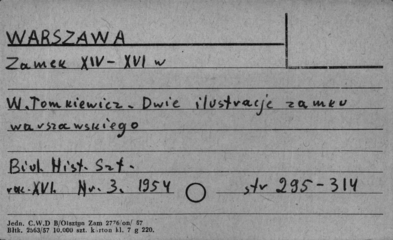 WARSZAWA
Zamek XIV - XVI w
W. Tomkiewicz - Dwie ilustracje zamku
warszawskiego
Biul. Hist. Szt.
rok XVI. Nr. 3. 1954 str 295-314
Jedn. C.W.D B/Olsztyn Zam 2776/on/ 57
Bltk. 2563/57 10.000 szt. karton kl. 7 g 220.